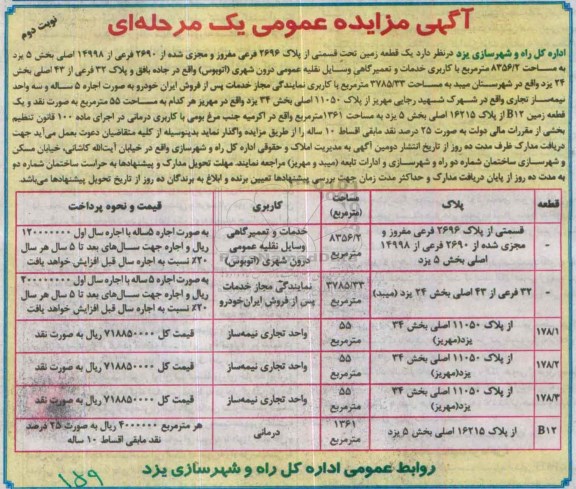 نوبت دوم
آگهی مزایده عمومی یک مرحله‌ای
اداره کل راه و شهرسازی یزد درنظر دارد یک قطعه زمین تحت قسمتی از پلاک ۲۶۹۶ فرعی مفروز و مجزی شده از ۲۶۹۰ فرعی از ۱۴۹۹۸ اصلی بخش ۵ یزد
به مساحت ۸۳۵۶/۲ مترمربع با کاربری خدمات و تعمیرگاهی وسایل نقلیه عمومی درون شهری (اتوبوس) واقع در جاده بافق و پلاک ۳۲ فرعی از ۴۳ اصلی بخش
۲۴ یزد واقع در شهرستان میبد به مساحت ۳۷۸۵/۳۳ مترمربع با کاربری نمایندگی مجاز خدمات پس از فروش ایران خودرو به صورت اجاره ۵ ساله و سه واحد
نیمه‌ساز تجاری واقع در شهرک شهید رجایی مهریز از پلاک ۱۱۰۵۰ اصلی بخش ۳۴ یزد واقع در مهریز هر کدام به مساحت ۵۵ مترمربع به صورت نقد و یک
قطعه زمین B۱۲ از پلاک ۱۶۲۱۵ اصلی بخش ۵ یزد به مساحت ۱۳۶۱ مترمربع واقع در اکرمیه جنب مرغ بومی با کاربری درمانی در اجرای ماده ۱۰۰ قانون تنظیم
بخشی از مقررات مالی دولت به صورت ۲۵ درصد نقد مابقی اقساط ۱۰ ساله را از طریق مزایده واگذار نماید بدینوسیله از کلیه متقاضیان دعوت بعمل می‌آید جهت
دریافت مدارک ظرف مدت ده روز از تاریخ انتشار دومین آگهی به مدیریت املاک و حقوقی اداره کل راه و شهرسازی واقع در خیابان آیت‌الله کاشانی، خیابان مسکن
و شهرسازی ساختمان شماره دو راه و شهرسازی و ادارات تابعه (میبد و مهریز) مراجعه نمایند. مهلت تحویل مدارک و پیشنهادها به حراست ساختمان شماره دو
به مدت ده روز از پایان دریافت مدارک و حداکثر مدت زمان جهت بررسی پیشنهادها تعیین برنده و ابلاغ به برندگان ده روز از تاریخ تحویل پیشنهادها می‌باشد.
قطعه پلاک مساحت (مترمربع) کاربری قیمت و نحوه پرداخت
- قسمتی از پلاک ۲۶۹۶ فرعی مفروز و مجزی شده از ۲۶۹۰ فرعی از ۱۴۹۹۸ اصلی بخش ۵ یزد ۸۳۵۶/۲ مترمربع خدمات و تعمیرگاهی وسایل نقلیه عمومی درون شهری (اتوبوس) به صورت اجاره ۵ساله با اجاره سال اول ۱۲۰۰۰۰۰۰۰ ریال و اجاره جهت سال‌های بعد تا ۵ سال هر سال ۲۰٪ نسبت به اجاره سال قبل افزایش خواهد یافت
- ۳۲ فرعی از ۴۳ اصلی بخش ۲۴ یزد (میبد) ۳۷۸۵/۳۳ مترمربع نمایندگی مجاز خدمات پس از فروش ایران‌خودرو به صورت اجاره ۵ساله با اجاره سال اول ۲۰۰۰۰۰۰۰۰ ریال و اجاره جهت سال‌های بعد تا ۵ سال هر سال ۲۰٪ نسبت به اجاره سال قبل افزایش خواهد یافت
۱۷۸/۱ از پلاک ۱۱۰۵۰ اصلی بخش ۳۴ یزد(مهریز) ۵۵ مترمربع واحد تجاری نیمه‌ساز قیمت کل ۷۱۸۸۵۰۰۰۰ ریال به صورت نقد
۱۷۸/۲ از پلاک ۱۱۰۵۰ اصلی بخش ۳۴ یزد(مهریز) ۵۵ مترمربع واحد تجاری نیمه‌ساز قیمت کل ۷۱۸۸۵۰۰۰۰ ریال به صورت نقد
۱۷۸/۳ از پلاک ۱۱۰۵۰ اصلی بخش ۳۴ یزد(مهریز) ۵۵ مترمربع واحد تجاری نیمه‌ساز قیمت کل ۷۱۸۸۵۰۰۰۰ ریال به صورت نقد
B۱۲ از پلاک ۱۶۲۱۵ اصلی بخش ۵ یزد ۱۳۶۱ مترمربع درمانی هر مترمربع ۴۰۰۰۰۰۰ ریال به صورت ۲۵ درصد نقد مابقی اقساط ۱۰ ساله
روابط عمومی اداره کل راه و شهرسازی یزد
۱۵۹